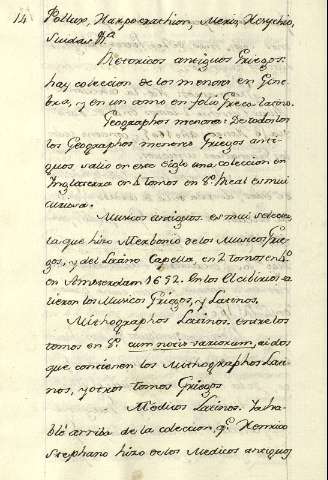 14
Pollux, Harpocrathion, Meris, Hesychio,
Suidas &.a
Rhetoricos antiguos Griegos:
hay coleccion de los menores en Gine
bra, y en un tomo en folio Greco-latino.
Geographos menores: De todos los
los Geographos menores Griegos anti-
guos salió en este siglo una coleccion en
Inglaterra en 4 tomos en 8.º Real es mui
curiosa.
Musicos antiguos. es mui selecta
la que hizo Meibonio de los Musicos Grie
gos, y del Latino Capella, en 2 tomos en 4.º
en Amsterdam 1652. En los Elzibirios sa
lieron los Musicos Griegos, y Latinos.
Mithographos Latinos. entre los
tomos en 8.º cum notis variorum, ai dos
que contienen los Mithographos Lati
nos, y otros tomos Griegos
Medicos Latinos. Ya ha
blé arriba de la coleccion, q.e Henrico
Stephano hizo de los Medicos antiguos